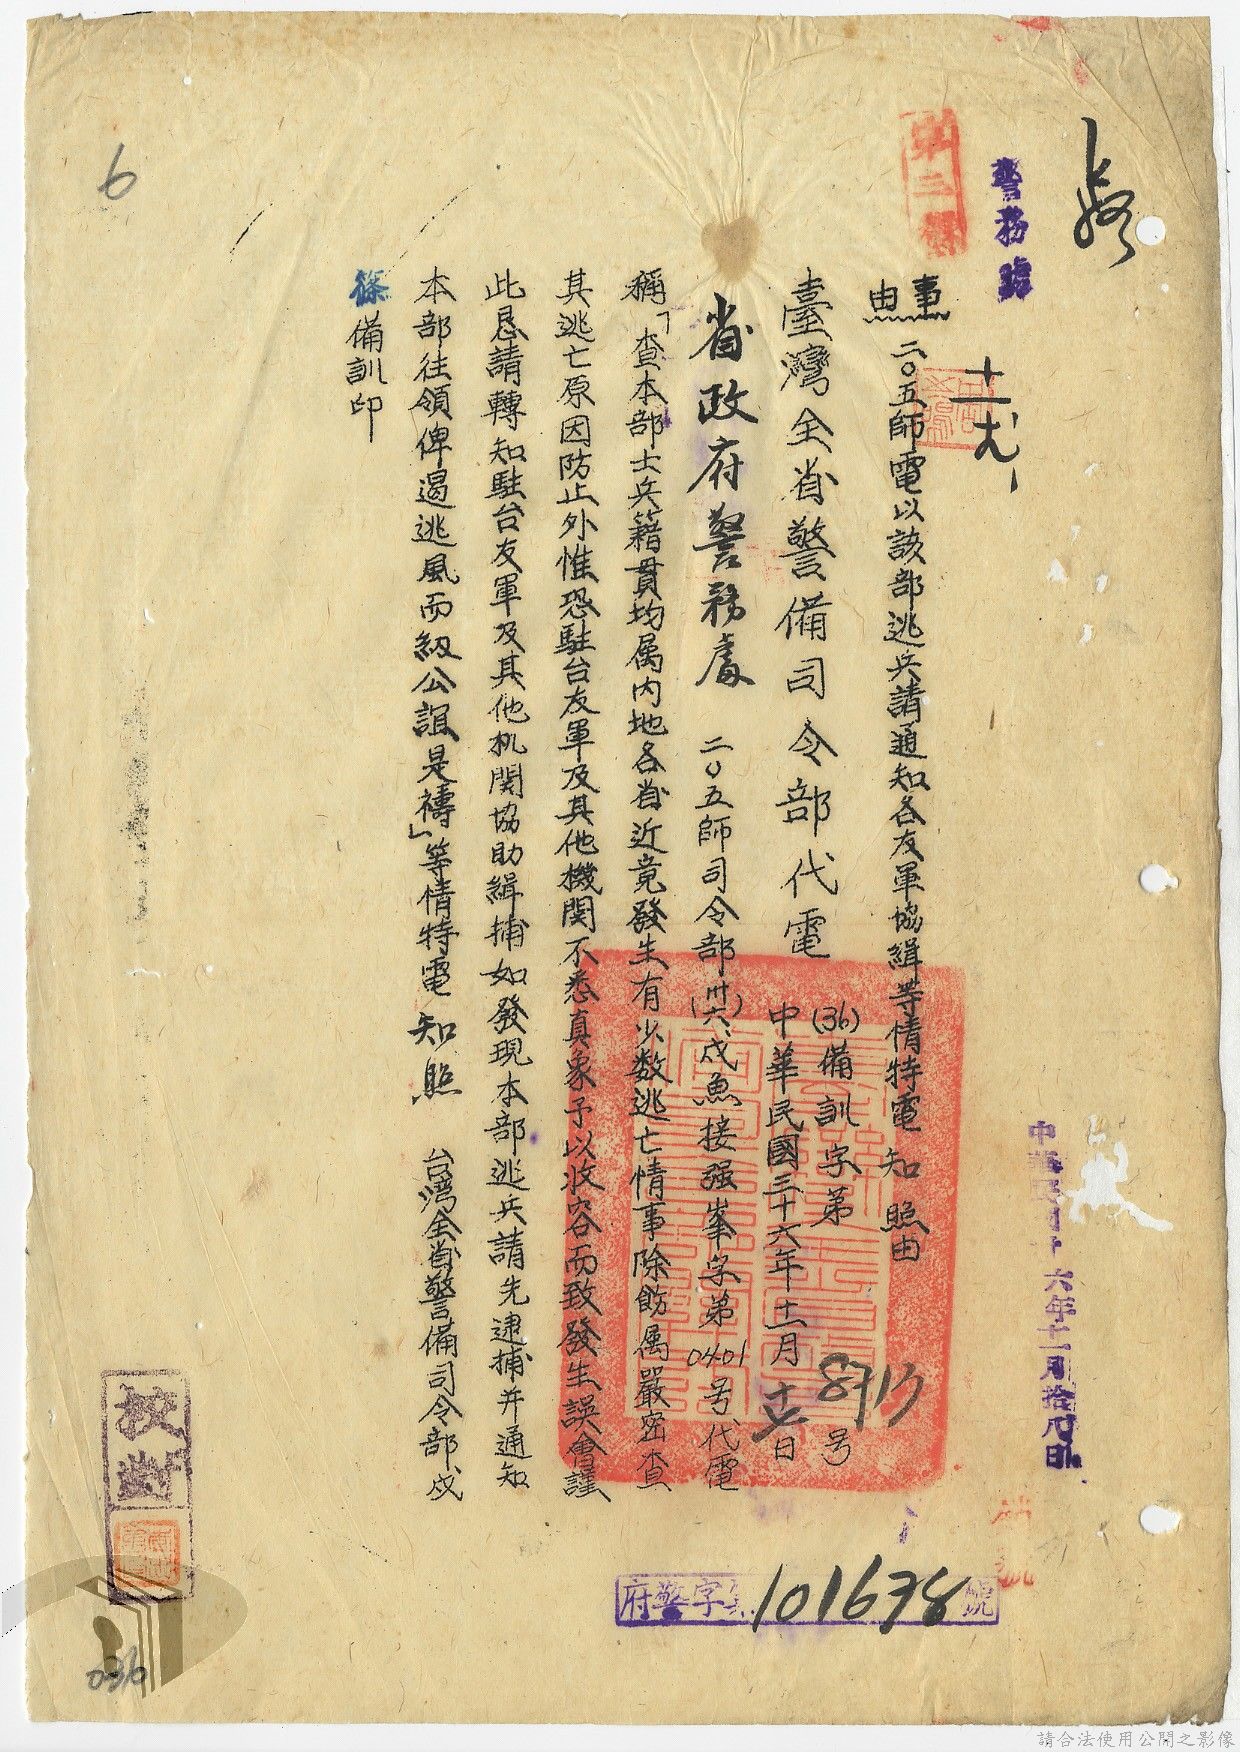 警務處
第三科
十一 十九
事由 二〇五師電以該部逃兵請通知各友軍協緝等情特電 知照由
臺灣全省警備司令部代電
(36)備訓字第8717号
中華民國三十六年十一月 日
省政府警務處 二〇五師司令部(卅六)戍魚接强峯字第0401号代電
稱「查本部士兵籍貫均属内地各省近竟發生有少数逃亡情事除飭属嚴密查
其逃亡原因防止外惟恐駐台友軍及其他機関不悉真象予以收容而致發生誤會謹
此恳請轉知駐台友軍及其他机関協助緝捕如發現本部逃兵請先逮捕并通知
本部往領俾遏逃風而級公誼是禱」等情特電 知照 台灣全省警備司令部戍
篠備訓印
中華民國卅六年十一月拾八日
府警字第101678號
校對
6
036
請合法使用公開之影像